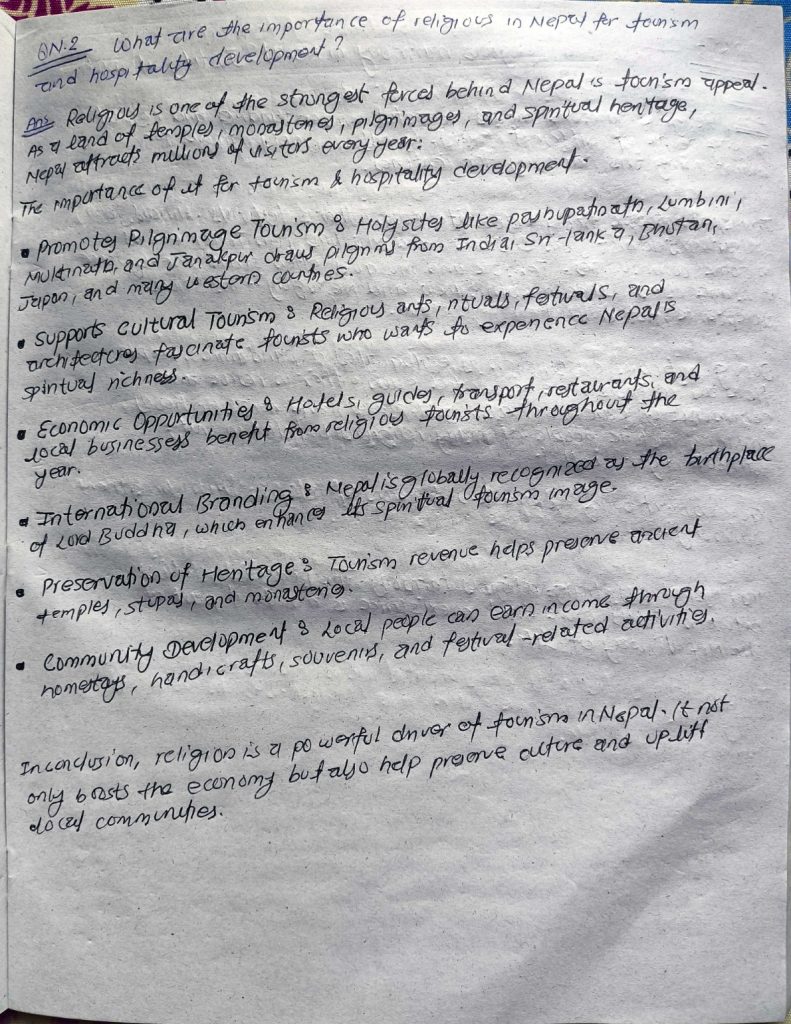 QN.2 What are the importance of religious in Nepal for tourism
and hospitality development?
Ans Religious is one of the strongest forces behind Nepal's tourism appeal.
As a land of temples, monasteries, pilgrimages, and spiritual heritage,
Nepal attracts millions of visitors every year:
The importance of it for tourism & hospitality development.
• Promotes Pilgrimage Tourism : Holy sites like pashupatinath, Lumbini,
Muktinath, and Janakpur draws pilgrims from India, Sri-lanka, Bhutan,
Japan, and many western countries.
• Supports Cultural Tourism : Religious arts, rituals, festivals, and
architectures fascinate tourists who wants to experience Nepal's
spiritual richness.
• Economic Opportunities : Hotels, guides, transport, restaurants, and
local businessess benefit from religious tourists throughout the
year.
• International Branding : Nepal is globally recognized as the birthplace
of Lord Buddha, which enhances its spiritual tourism image.
• Preservation of Heritage : Tourism revenue helps preserve ancient
temples, stupas, and monasteries.
• Community Development : Local people can earn income through
homestays, handicrafts, souvenirs, and festival-related activities.
In conclusion, religion is a powerful driver of tourism in Nepal. It not
only boosts the economy but also help preserve culture and uplift
local communities.